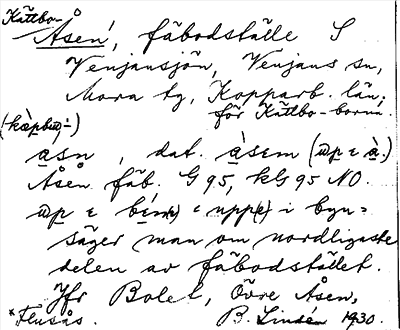 Kättbo-
Åsen, fäbodställe S
Venjansjön, Venjans sn,
Mora tg, Kopparb. län.
för Kättbo-borna.
(-kæ̀pbω-)
a̲sn, dat. àsem (ωp ε à.)
Åsen fäb. G 95, kG 95 NO.
ωp ε bέ » upp i byn »
säger man om nordligaste
delen av fäbodstället.
Jfr Bolet, Övre Åsen,
* Flusås. B. Lindén 1930.